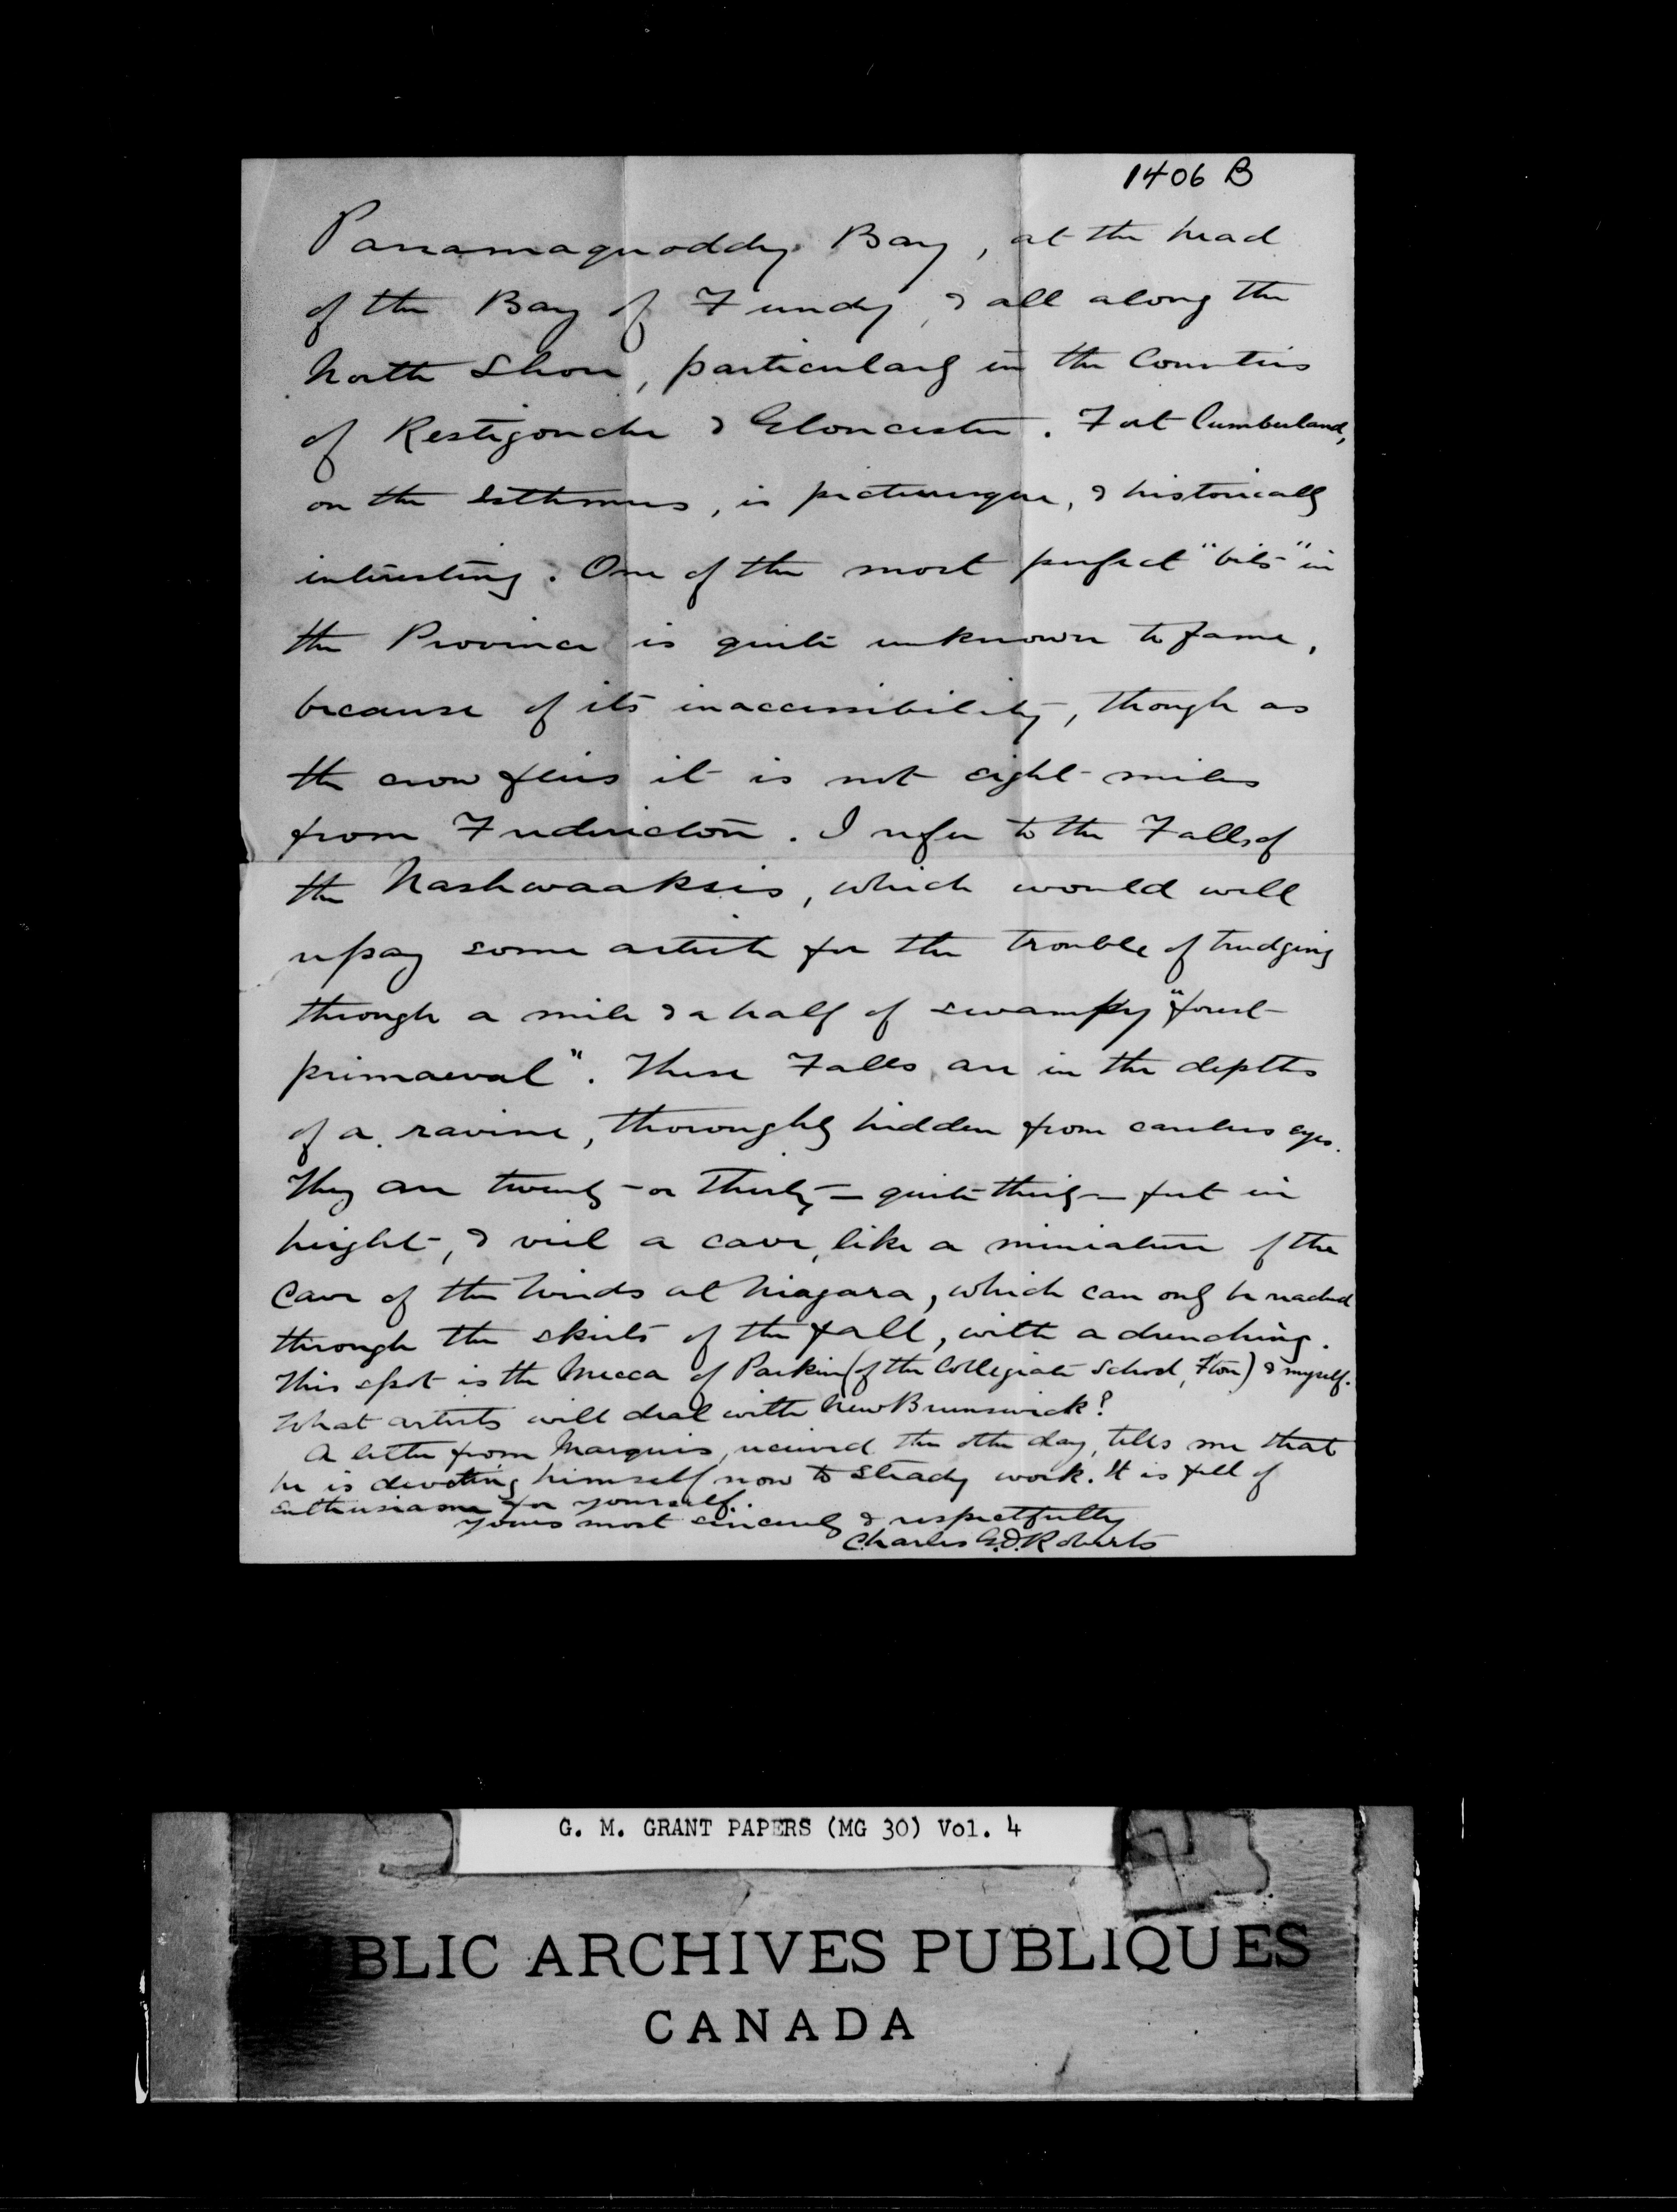 1406 B
Passamaquoddy Bay, at the head
of the Bay of Fundy, & all along the
North Shore, particularly in the Counties
of Restigouche & Gloucester. Fort Cumberland,
on the Isthmus, is picturesque, & historically
interesting. One of the most perfect "bits" in
the Province is quite unknown to fame,
because of its inaccessibility, though as
the crow flies it is not eight miles
from Fredericton. I refer to the Falls of
the Nashwaaksis, which would well
repay some artist for the trouble of trudging
through a mile & a half of swampy "forest
primaeval". These Falls are in the depths
of a ravine, thoroughly hidden from careless eyes.
They are twenty or thirty – quite thirty – feet in
height, & veil a cave, like a miniature of the
Cave of the Winds at Niagara, which can only be reached
through the skirts of the fall, with a drenching.
This spot is the Mecca of Parkin (of the Collegiate School, F'ton) & myself.
What artists will deal with New Brunswick?
A letter from Marquis, received the other day, tells me that
he is devoting himself now to steady work. It is full of
enthusiasm for yourself.
Yours most sincerely & respectfully
Charles G.D. Roberts
G. M. GRANT PAPERS (MG 30) Vol. 4
BLIC ARCHIVES PUBLIQUES
CANADA